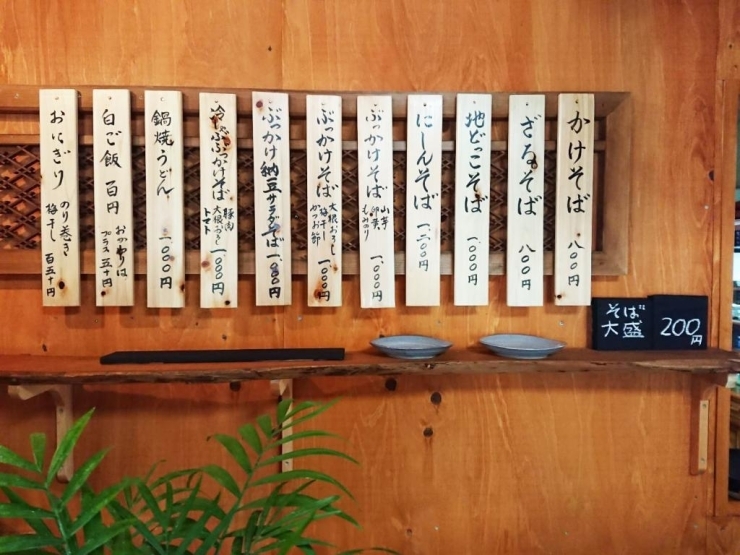 かけそば 八〇〇円
ざるそば 八〇〇円
地どっこそば 一、〇〇〇円
にしんそば 一、二〇〇円
ぶっかけそば 山芋 卵黄 もみのり 一、〇〇〇円
ぶっかけそば 大根おろし 梅干し かつお節 一、〇〇〇円
ぶっかけ納豆サラダそば 一、〇〇〇円
冷しゃぶぶっかけそば 豚肉 大根おろし トマト 一、〇〇〇円
鍋焼うどん 一、〇〇〇円
白ご飯 百円 おかわりは プラス 五十円
おにぎり のり巻き 梅干し 百五十円
そば
大盛
200円